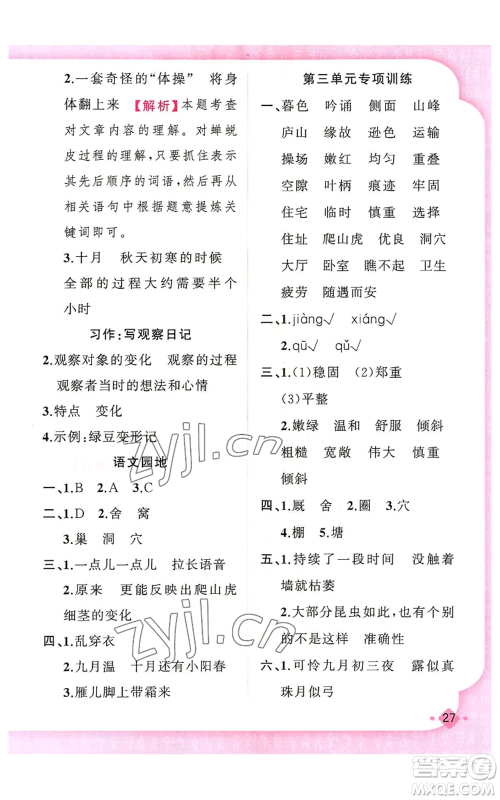 2.一套奇怪的“体操” 将身
体翻上来 【解析】本题考查
对文章内容的理解。对蝉蜕
皮过程的理解,只要抓住表示
其先后顺序的词语,再从文章
相关语句中根据题意提炼关
键词即可。
3.十月 秋天初寒的时候
全部的过程大约需要半个
小时
习作:写观察日记
2.观察对象的变化 观察的过程
观察者当时的想法和心情
3.特点 变化
4.示例:绿豆变形记
语文园地
一、1.B 2.A 3.C
二、1.D 2.舍 窝
3.巢 洞 穴
三、1.一点儿一点儿 拉长语音
2.原来 更能反映出爬山虎
细茎的变化
四、1.乱穿衣
2.九月温 十月还有小阳春
3.雁儿脚上带霜来
第三单元专项训练
一、暮色 吟诵 侧面 山峰
庐山 缘故 逊色 运输
操场 嫩红 均匀 重叠
空隙 叶柄 痕迹 牢固
住宅 临时 慎重 选择
住址 爬山虎 优良 洞穴
大厅 卧室 瞧不起 卫生
疲劳 随遇而安
二、1.jiàng√ xiáng√
2.qū√ qǔ√
三、1.(1)稳固 (2)郑重
(3)平整
2.嫩绿 温和 舒服 倾斜
粗糙 宽敞 优质 干燥
四、1.厩 舍 2.圈 3.穴
4.棚 5.塘
五、1.持续了一段时间 没触着
墙就枯萎
2.大部分昆虫如此,但不绝
对 准确性
六、1.可怜九月初三夜 露似真
珠月似弓
27
zyjl.cn
zyjl.cn
答案圈
MXQE.COM